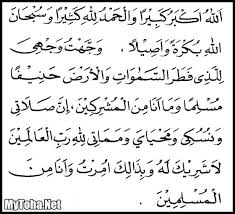 اَللهُ اَكْبَرُ كَبِيْرًا وَالْحَمْدُ لِلّٰهِ كَثِيْرًا وَسُبْحَانَ
اللهِ بُكْرَةً وَاَصِيْلًا ، وَجَّهْتُ وَجْهِيَ
لِلَّذِى فَطَرَ السَّمٰوَاتِ وَالْاَرْضَ حَنِيْفًا
مُسْلِمًا وَمَا اَنَا مِنَ الْمُشْرِكِيْنَ. اِنَّ صَلَاتِى
وَنُسُكِى وَمَحْيَاىَ وَمَمَاتِى لِلّٰهِ رَبِّ الْعَالَمِيْنَ
لَا شَرِيْكَ لَهُ وَبِذَالِكَ اُمِرْتُ وَاَنَا مِنَ
الْمُسْلِمِيْنَ .
MyToba.Net